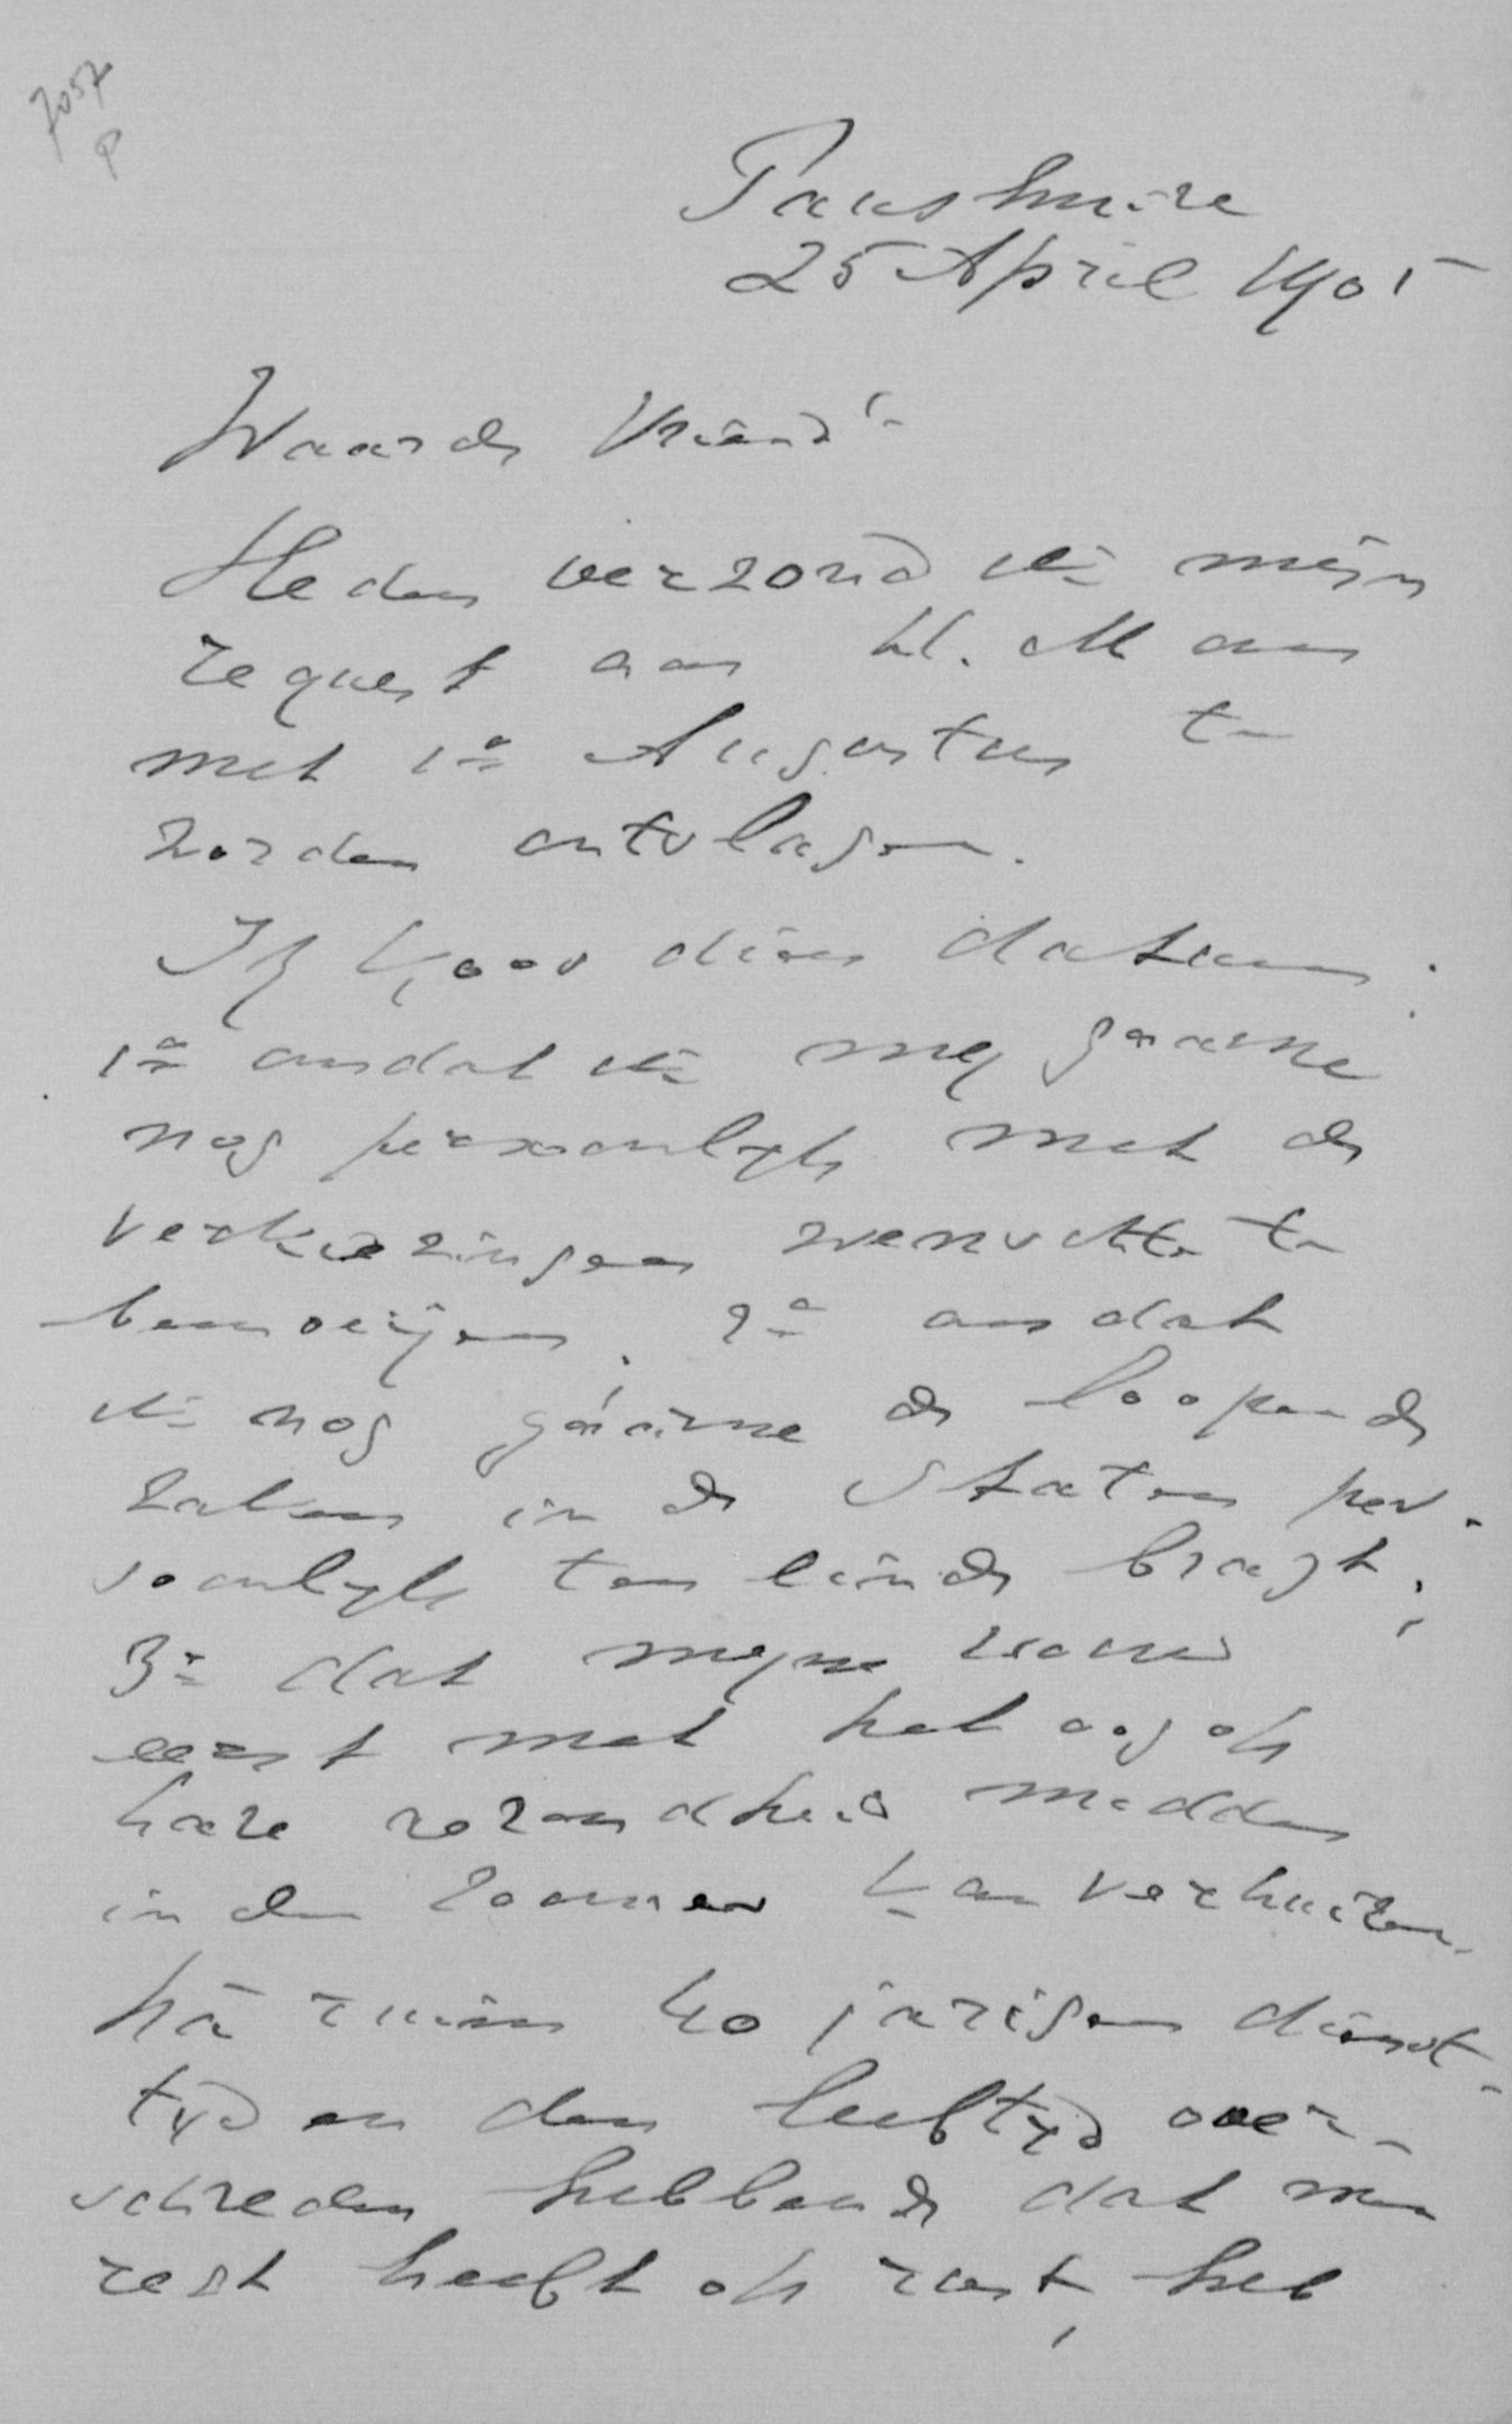 7057
P
Paushuize
25 April 1905
Waarde Vriend
Heden verzond ik mijn
request aan H. M om
met 1e Augustus te
worden ontslagen.
Ik koos dien datum:
1e omdat ik mij gaarne
nog persoonlijk met de
verkiezingen wenschte te
bemoeijen. 2e omdat
ik nog gaarne de loopende
zaken in de Staten per-
soonlijk ten einde bragt;
3e dat mijne vrouw
eerst met het oog op
hare gezondheid midden
in den zomer kan verhuizen.
Na ruim 40 jarigen dienst-
tijd en den leeftijd over-
schreden hebbende dat men
regt heeft op rust, heb